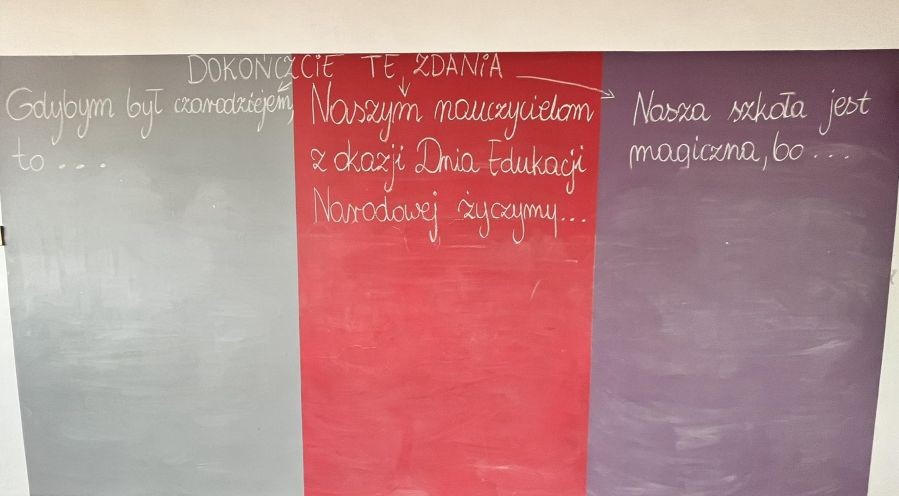 DOKOŃCZCIE TE ZDANIA
Gdybym był czarodziejem,
to ...
Naszym nauczycielom
z okazji Dnia Edukacji
Narodowej życzymy...
Nasza szkoła jest
magiczna, bo ...